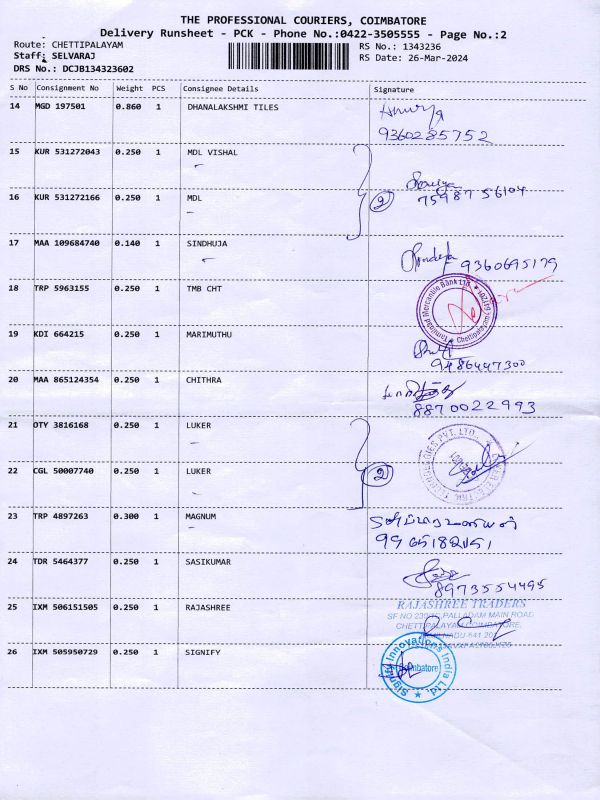 THE PROFESSIONAL COURIERS, COIMBATORE
Delivery Runsheet - PCK - Phone No.:0422-3505555 - Page No.:2
Route: CHETTIPALAYAM
Staff: SELVARAJ
DRS No.: DCJB134323602
RS No.: 1343236
RS Date: 26-Mar-2024
S No Consignment No Weight PCS Consignee Details Signature
14 MGD 197501 0.860 1 DHANALAKSHMI TILES
9360285752
15 KUR 531272043 0.250 1 MDL VISHAL
16 KUR 531272166 0.250 1 MDL
2
75987 56104
17 MAA 109684740 0.140 1 SINDHUJA
9360695179
18 TRP 5963155 0.250 1 TMB CHT
Tamilnad Mercantile Bank Ltd.
19 KDI 664215 0.250 1 MARIMUTHU
9486447300
20 MAA 865124354 0.250 1 CHITHRA
8870022993
21 OTY 3816168 0.250 1 LUKER
22 CGL 50007740 0.250 1 LUKER
2
23 TRP 4897263 0.300 1 MAGNUM
24 TDR 5464377 0.250 1 SASIKUMAR
8973554495
25 IXM 506151505 0.250 1 RAJASHREE
RAJASHREE TRADERS
PALLADAM MAIN ROAD
CHETTIPALAYAM, COIMBATORE,
26 IXM 505950729 0.250 1 SIGNIFY
Signify Innovations India Ltd.
Coimbatore